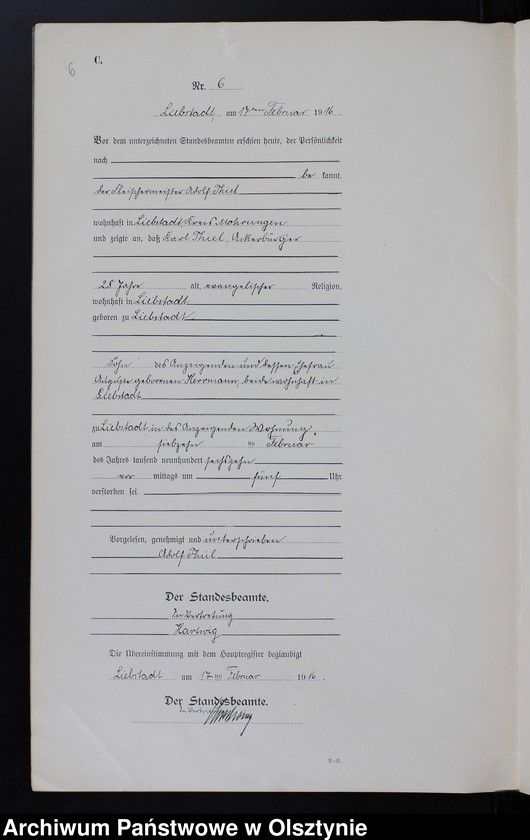 6
C.
Nr. 6
Liebstadt, am 17ten Februar 1916.
Vor dem unterzeichneten Standesbeamten erschien heute, der Persönlichkeit
nach
be kannt,
der Fleischermeister Adolf Thiel
wohnhaft in Liebstadt, Kreis Mohrungen
und zeigte an, daß Karl Thiel, Ackerbürger
28 Jahre alt, evangelischer Religion,
wohnhaft in Liebstadt
geboren zu Liebstadt,
Sohn des Anzeigenden und dessen Ehefrau
Auguste geborenen Herrmann, beide wohnhaft in
Liebstadt
zu Liebstadt, in des Anzeigenden Wohnung,
am siebzehn ten Februar
des Jahres tausend neunhundert sechszehn
vor mittags um fünf Uhr
verstorben sei.
Vorgelesen, genehmigt und unterschrieben
Adolf Thiel
Der Standesbeamte.
In Vertretung
Hartwig
Die Übereinstimmung mit dem Hauptregister beglaubigt
Liebstadt am 17ten Februar 1916.
Der Standesbeamte.
In Vertretung
Hartwig
Archiwum Państwowe w Olsztynie